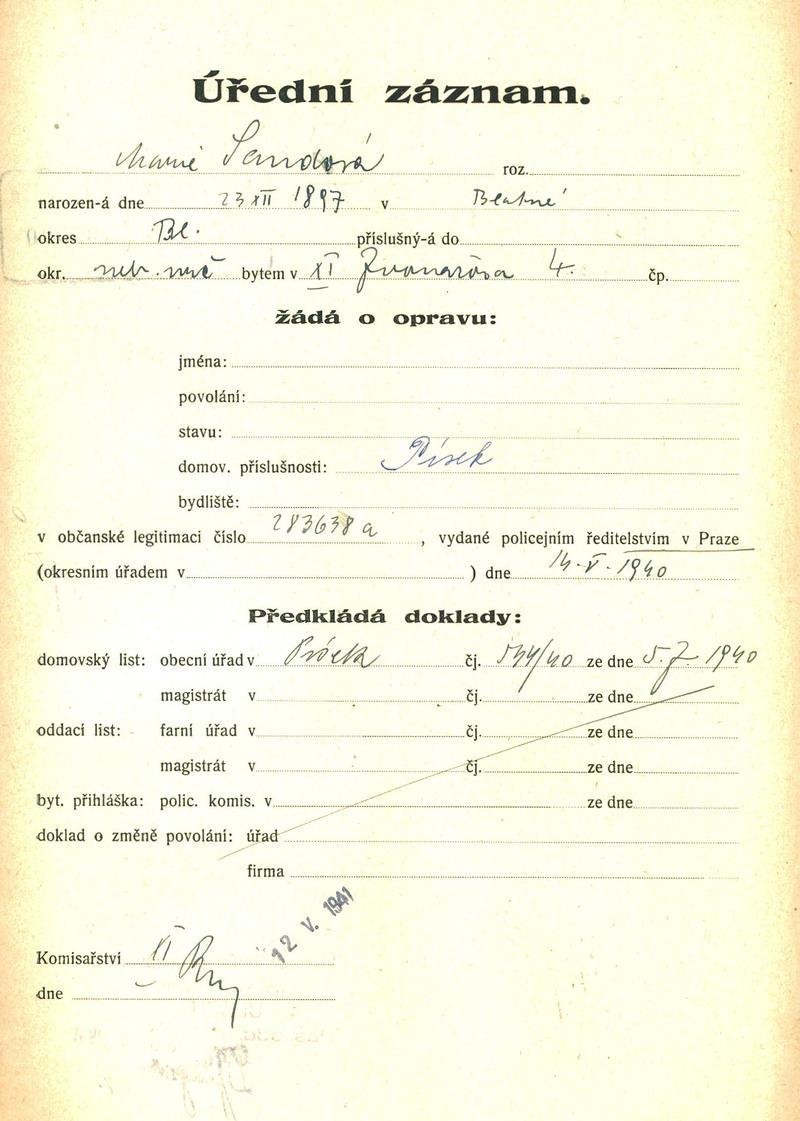 Úřední záznam.
Marie Sandorá roz.
narozen-á dne 23 XII 1897 v Blatné
okres Bl. příslušný-á do
okr. bytem v XI 4. čp.
žádá o opravu:
jména:
povolání:
stavu:
domov. příslušnosti: Písek
bydliště:
v občanské legitimaci číslo 283638 a , vydané policejním ředitelstvím v Praze
(okresním úřadem v ) dne 14. V. 1940
Předkládá doklady:
domovský list: obecní úřad v Písek čj. 544/40 ze dne 5. 7. 1940
magistrát v čj. ze dne
oddací list: farní úřad v čj. ze dne
magistrát v čj. ze dne
byt. přihláška: polic. komis. v ze dne
doklad o změně povolání: úřad
firma
12 V. 1941
Komisařství XI
dne